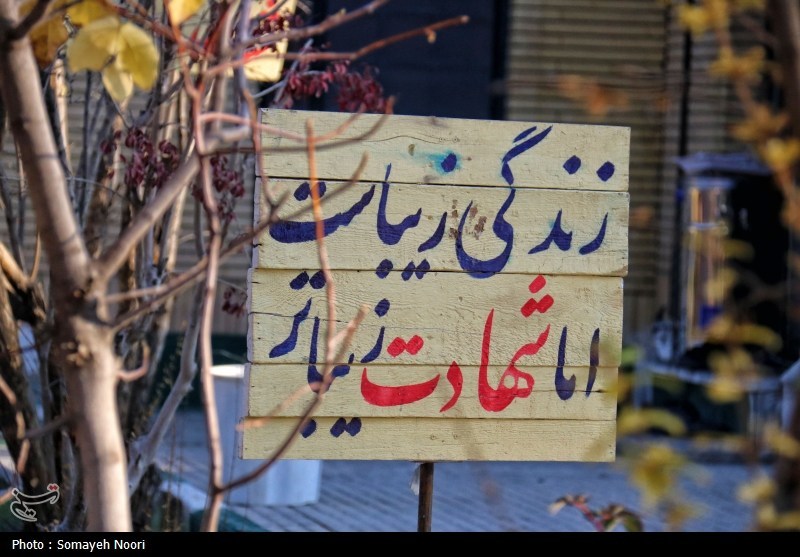 زندگی زیباست
اما شهادت زیباتر
تسنیم
Photo : Somayeh Noori